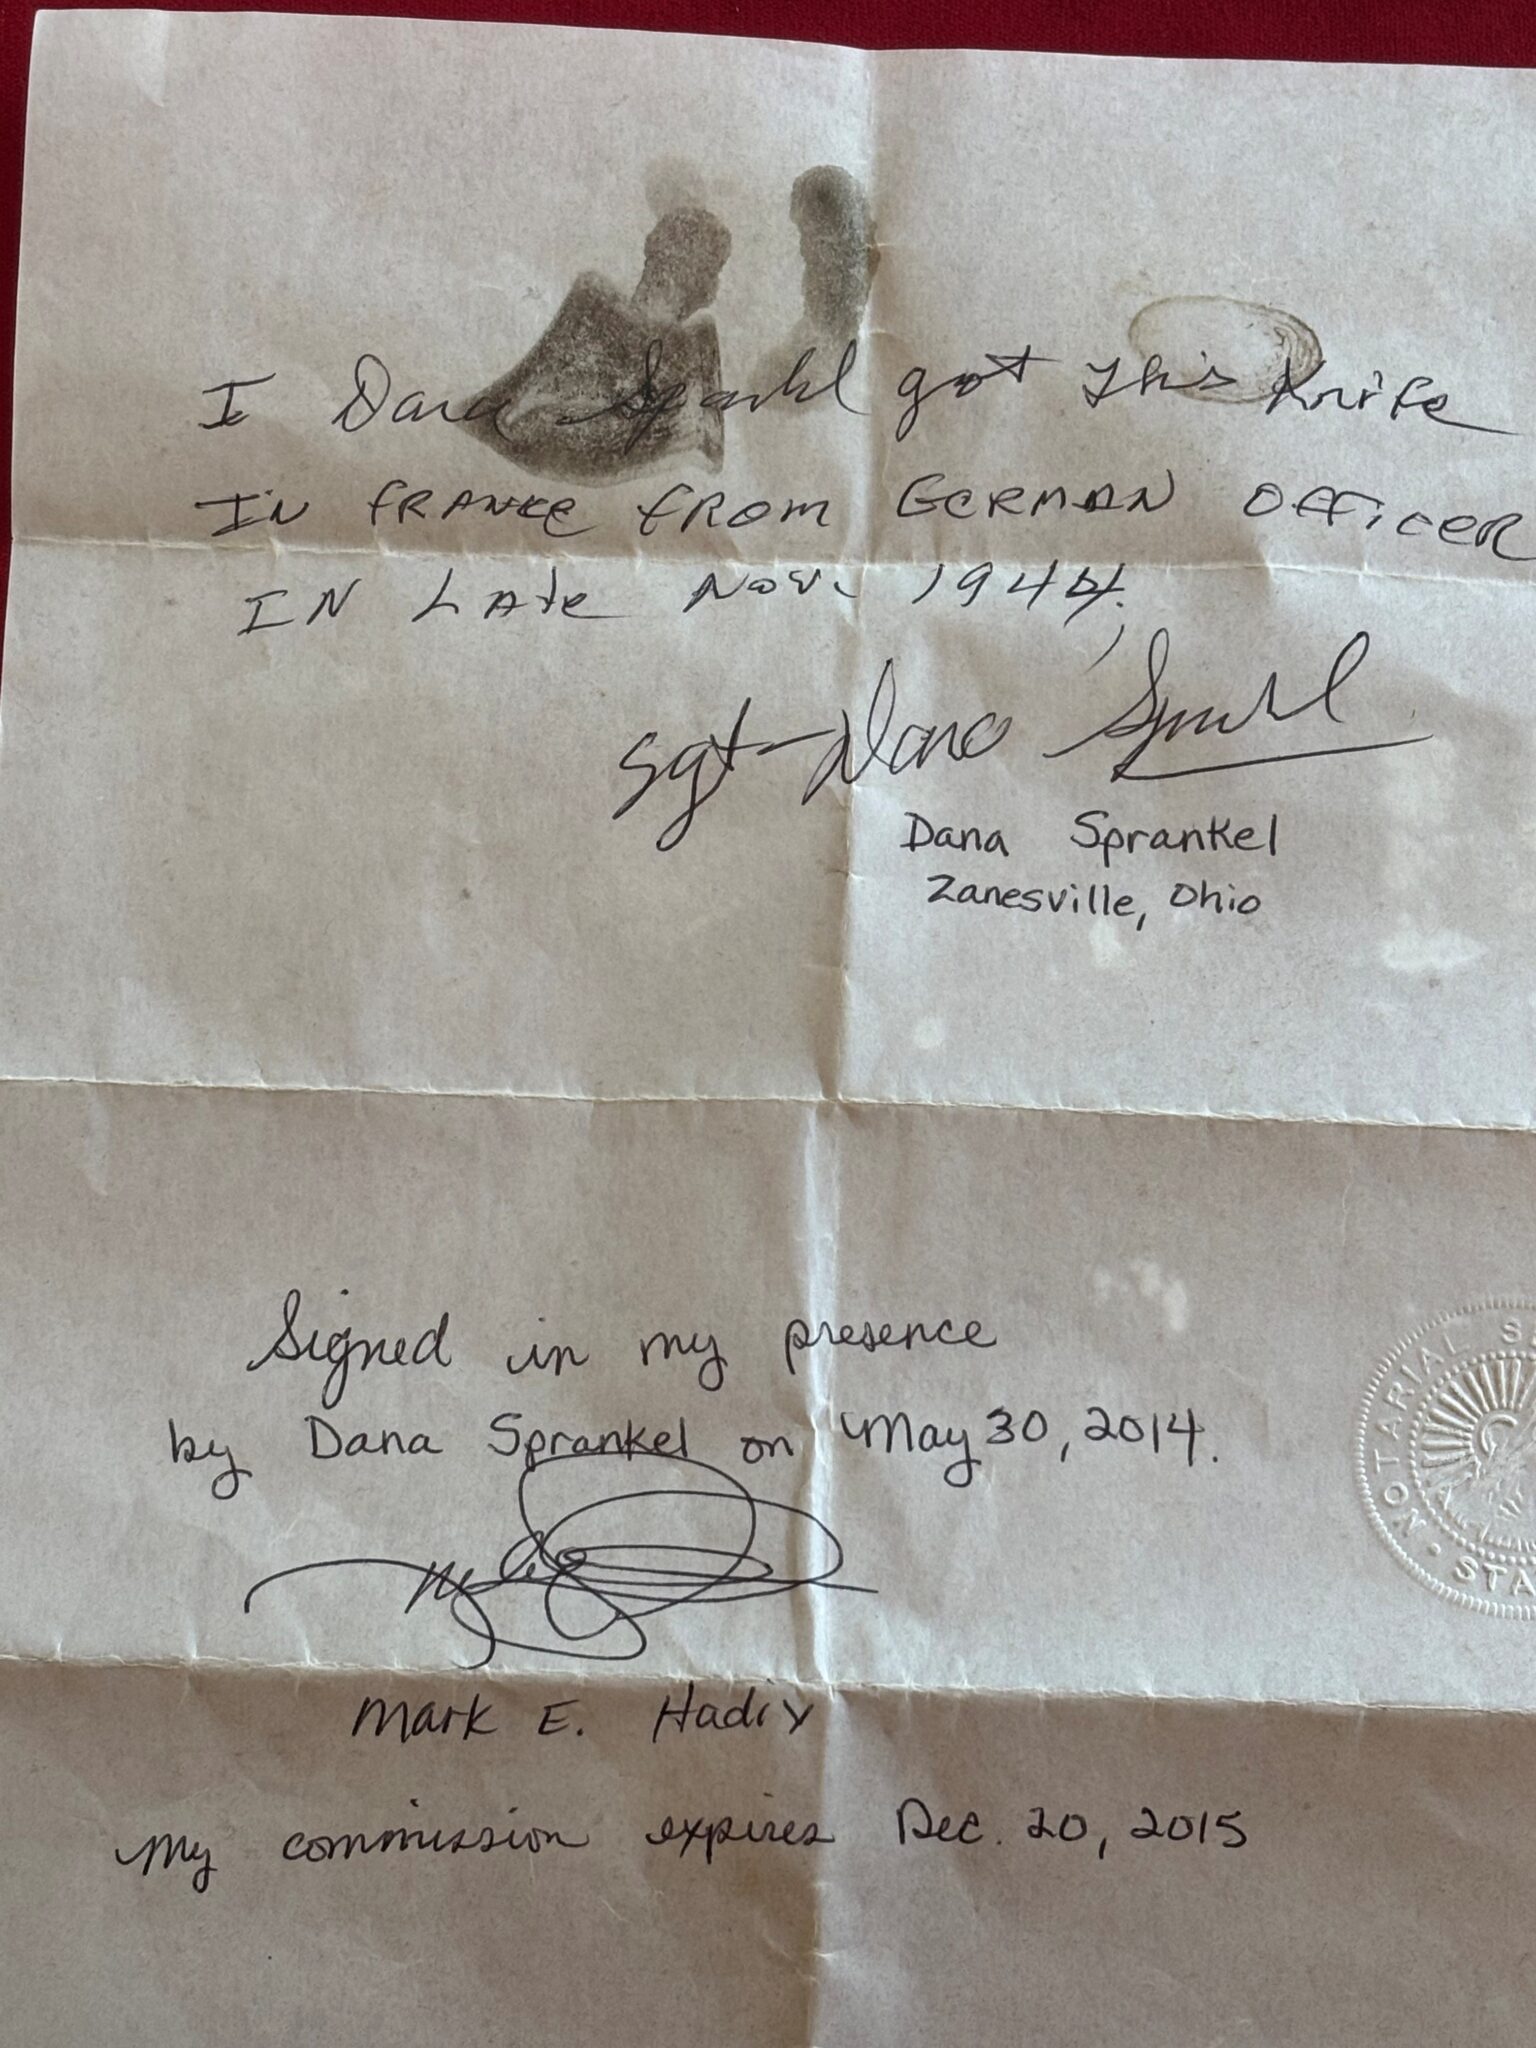 I Dana Sprankel got this Knife
IN FRANCE FROM GERMAN OFFICER
IN LATE NOV. 1944.
Sgt Dana Sprankel
Dana Sprankel
Zanesville, Ohio
Signed in my presence
by Dana Sprankel on May 30, 2014.
Mark E. Hadix
My commission expires Dec. 20, 2015
NOTARIAL S
STA